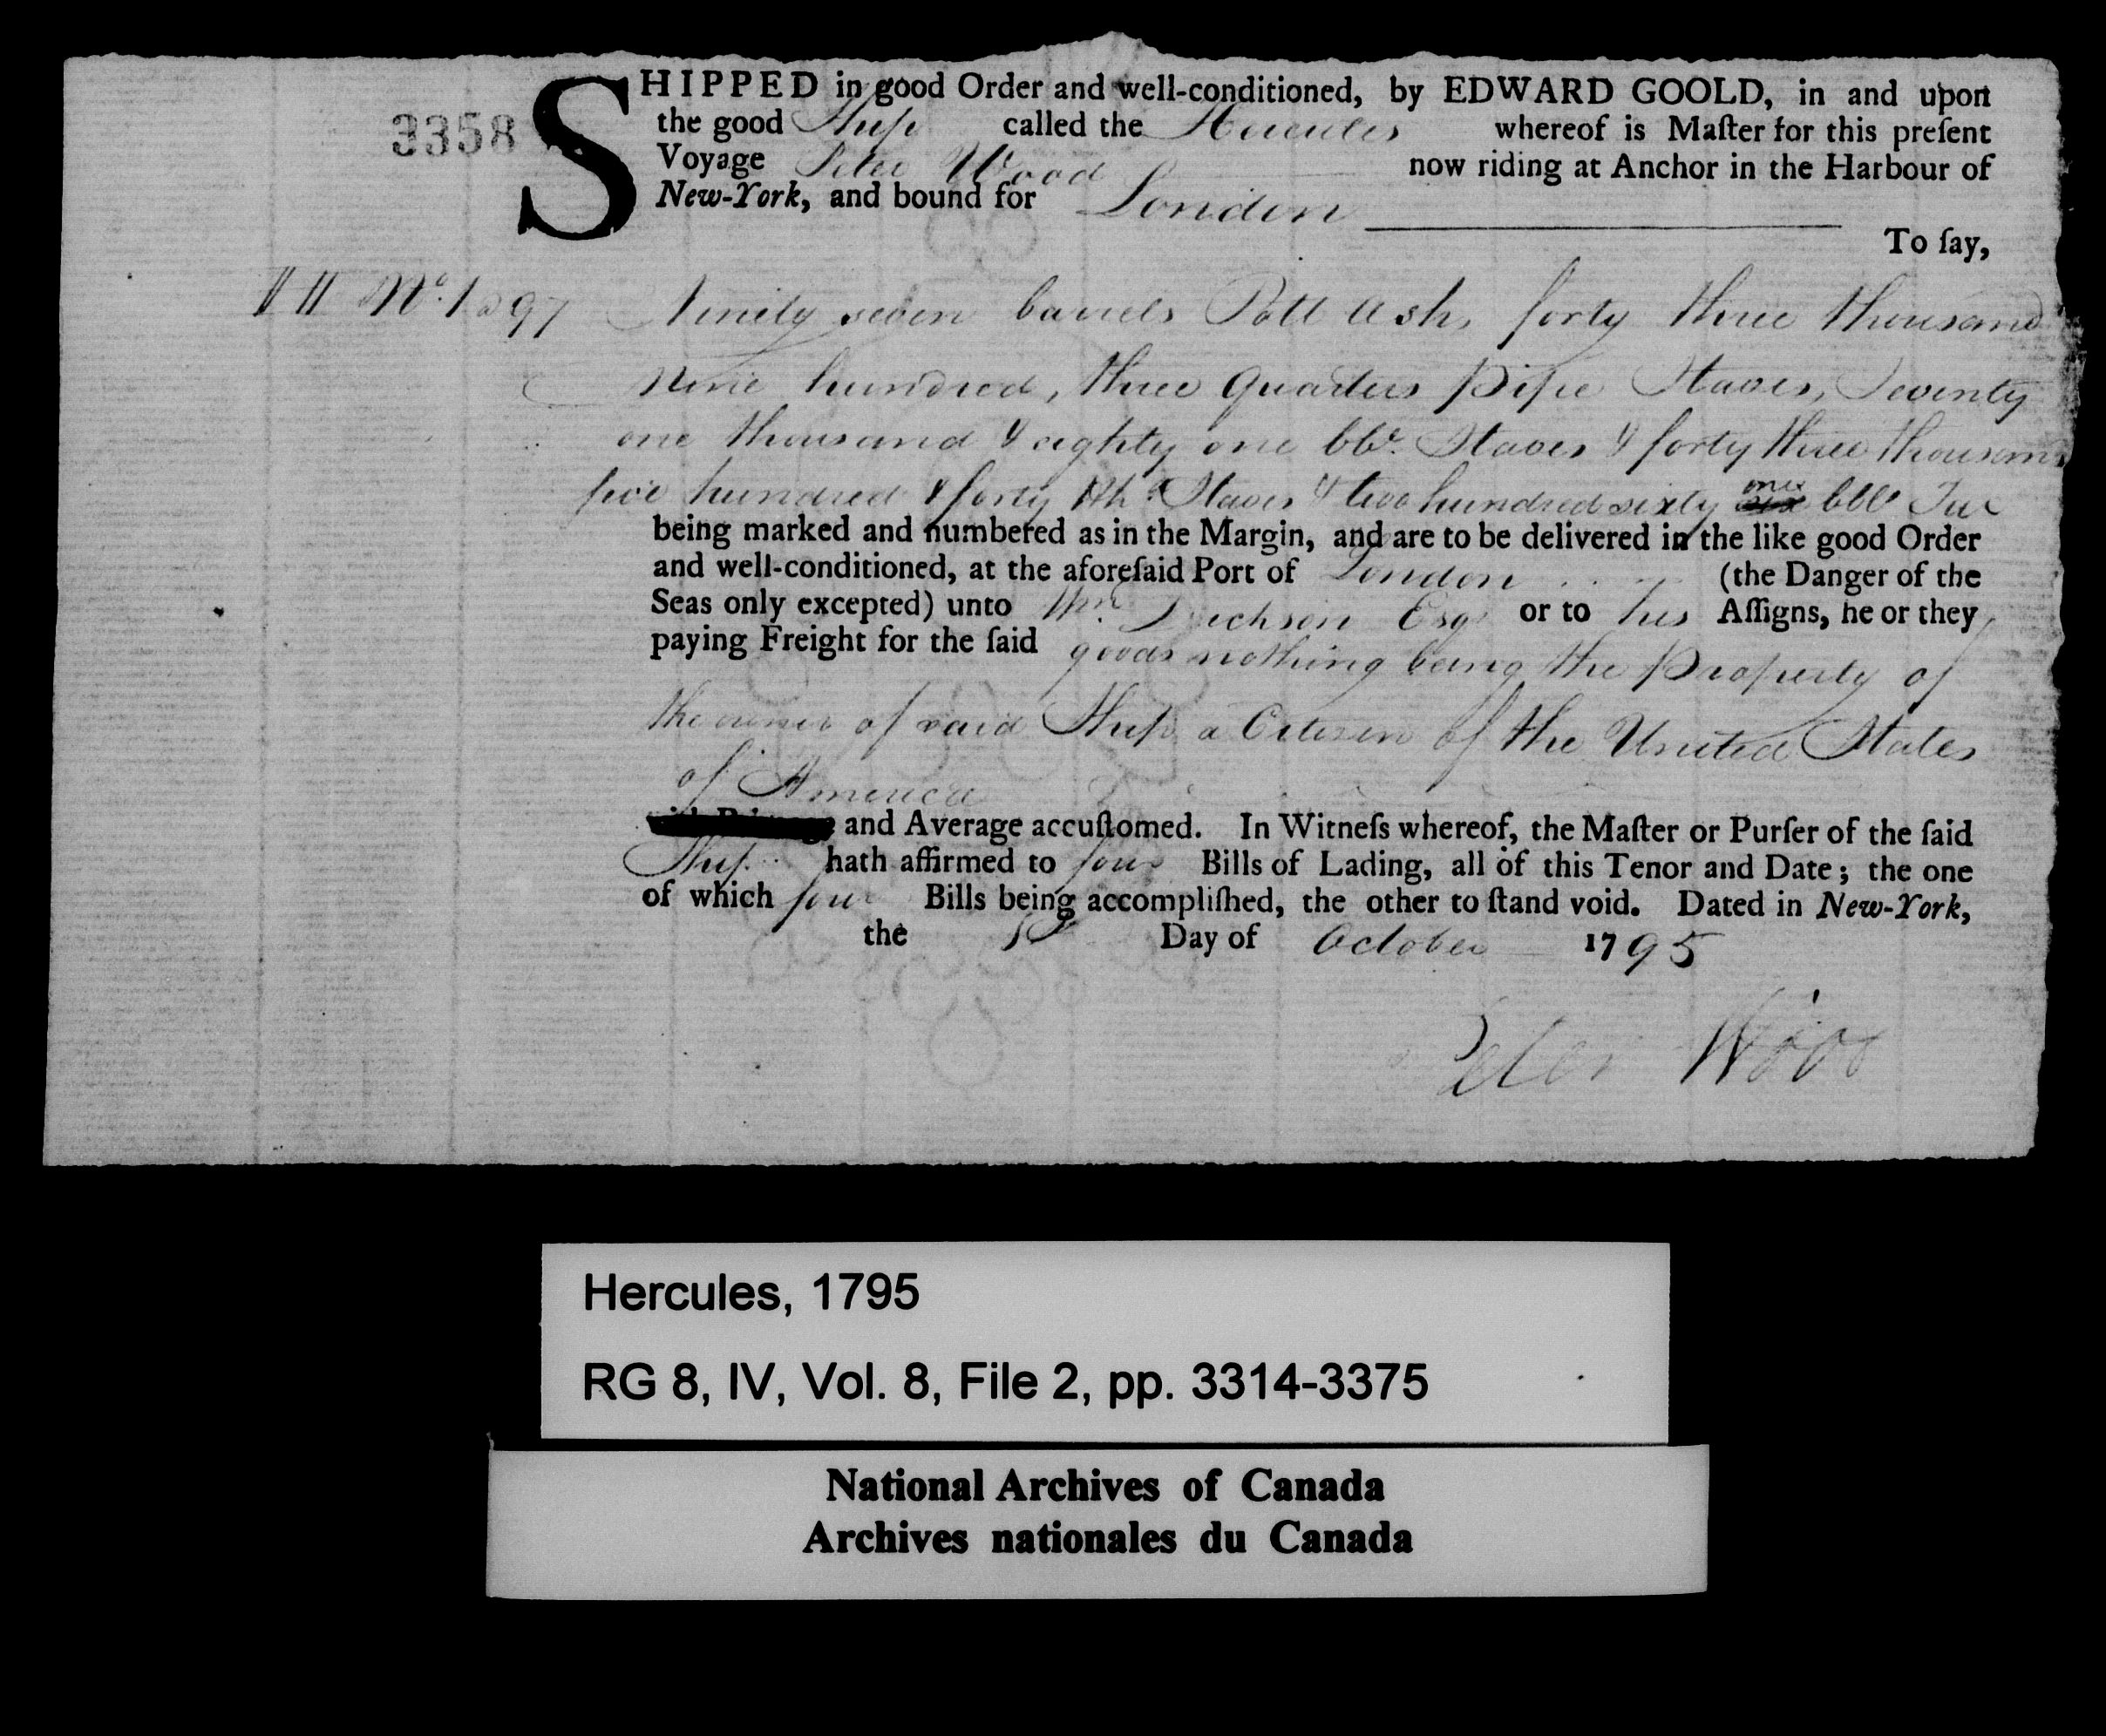 3358
SHIPPED in good Order and well-conditioned, by EDWARD GOOLD, in and upon
the good Ship called the Hercules whereof is Maſter for this preſent
Voyage Peter Wood now riding at Anchor in the Harbour of
New-York, and bound for London
To ſay,
No. 1 a 97 Ninety seven barrels Pott Ash, forty three thousand
Nine hundred, three quarters pipe Staves, Seventy
one thousand & eighty one bbl. Staves & forty three thousand
five hundred & forty Hhd Staves & two hundred sixty one bbls Tar
being marked and numbered as in the Margin, and are to be delivered in the like good Order
and well-conditioned, at the aforeſaid Port of London (the Danger of the
Seas only excepted) unto Wm. Esqr or to his Aſſigns, he or they
paying Freight for the ſaid goods nothing being the Property of
the owner of said Ship a Citizen of the United States
of America
and Average accuſtomed. In Witneſs whereof, the Maſter or Purſer of the ſaid
Ship hath affirmed to four Bills of Lading, all of this Tenor and Date; the one
of which four Bills being accompliſhed, the other to ſtand void. Dated in New-York,
the Day of October 1795
Peter Wood
Hercules, 1795
RG 8, IV, Vol. 8, File 2, pp. 3314-3375
National Archives of Canada
Archives nationales du Canada